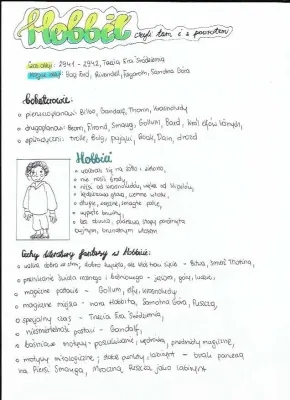 Hobbit czyli tam i z powrotem
Czas akcji: 2941 - 2942, Trzecia Era Śródziemia
Miejsce akcji: Bag End, Rivendell, Esgaroth, Samotna Góra
Bohaterowie:
• pierwszoplanowi: Bilbo, Gandalf, Thorin, Krasnoludy
• drugoplanowi: Beorn, Elrond, Smaug, Gollum, Bard, Król elfów leśnych,
• epizodyczni: trolle, Bolg, pająki, Roak, Dain, drozd
Hobbici
• ubierali się na żółto i zielono,
• nie nosili brody,
• niżsi od krasnoludów, więksi od
• kędzierzawa głowa, ciemne włosy
• długie, zręczne, smagłe palce,
• wypukłe brzuchy,
• bez obuwia, stopy porośnięte
brunatnym włosem
Cechy literatury fantasy w Hobbicie:
• walka dobra ze złem; dobro zwycięża, ale - Bitwa, Smoka
• przenikanie świata realnego i baśniowego - jeziora, góry, ludzie,
• magiczne postacie - Gollum, elfy, krasnoludy
• magiczne miejsca - nora Hobbita, Samotna Góra, Puszcza,
• specjalny czas - Trzecia Era Śródziemia,
• nieśmiertelność postaci - Gandalf,
• baśniowe motywy - poszukiwanie, wędrówka, przedmioty magiczne,
• motywy mitologiczne; słabe punkty, labirynt - brak pancerza
na Piersi Smauga, Mroczna Puszcza jako labirynt